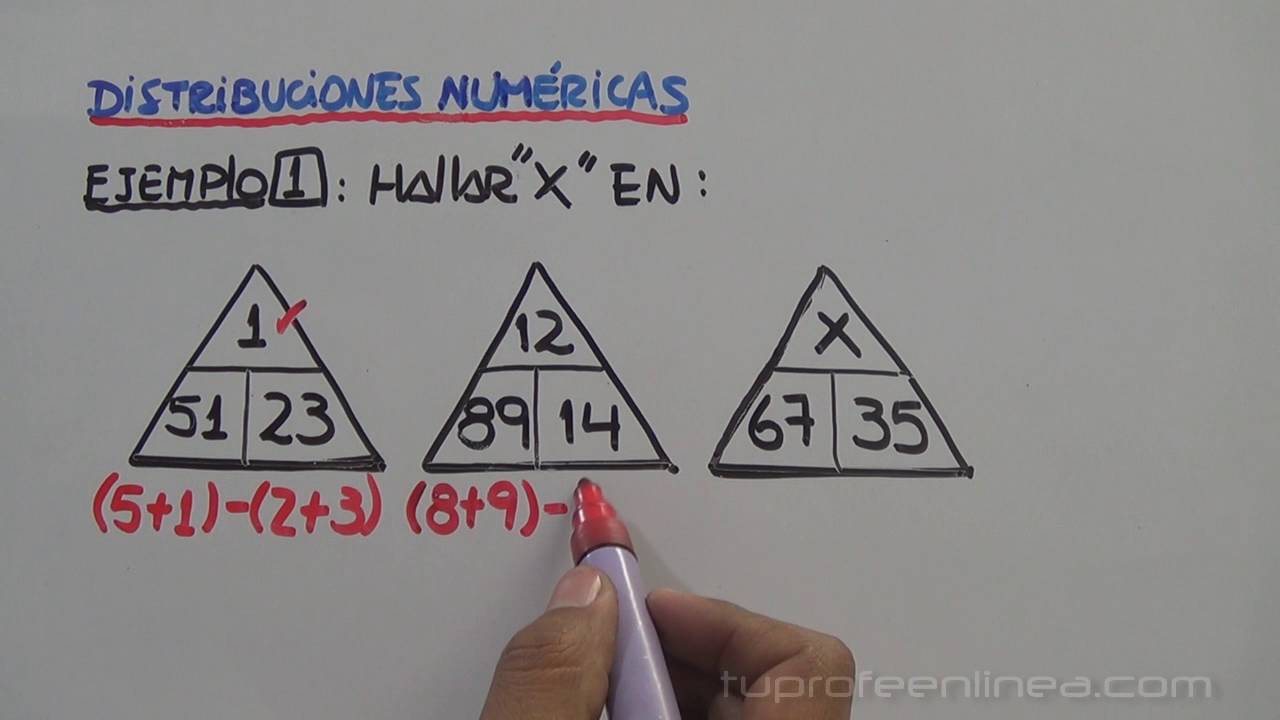 DISTRIBUCIONES NUMÉRICAS
EJEMPLO 1 : HALLAR "X" EN :
1 12 X
51 23 89 14 67 35
(5+1)-(2+3) (8+9)-
tuprofeenlinea.com